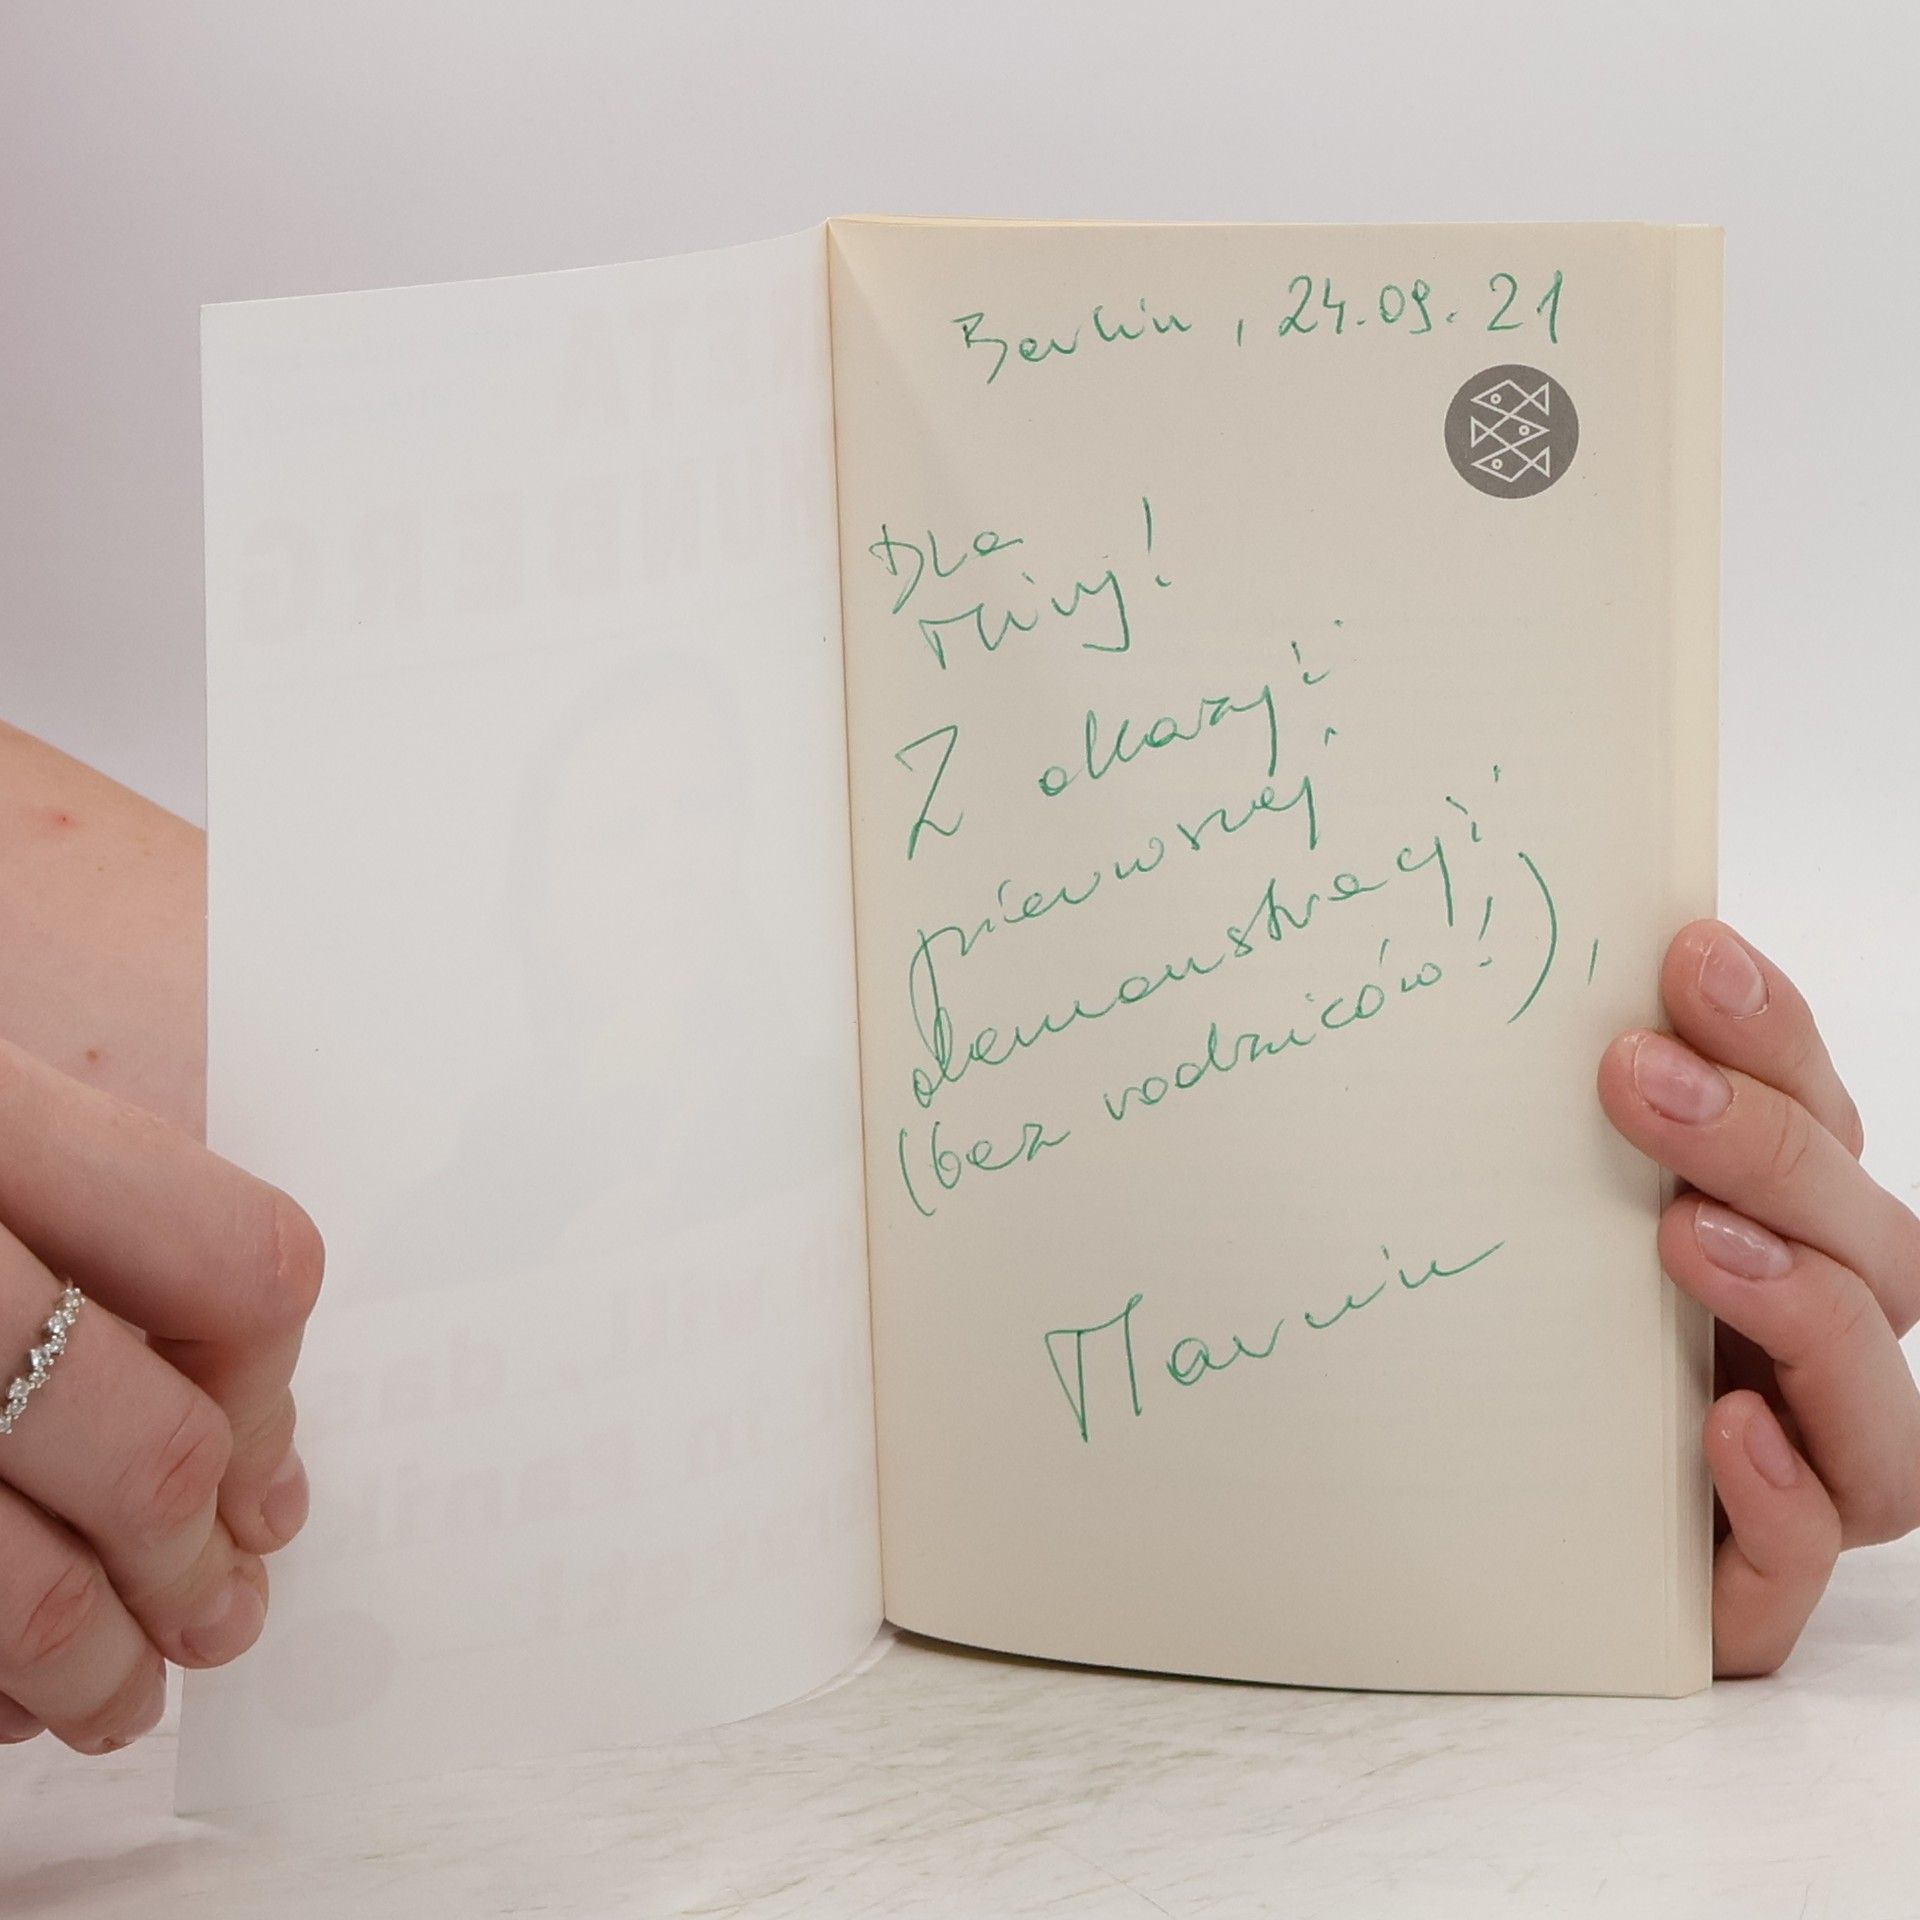 Berlin, 24.09.21
Dla
Miry!
Z okazji
pierwszej
demonstracji
(bez rodziców!),
Marcin